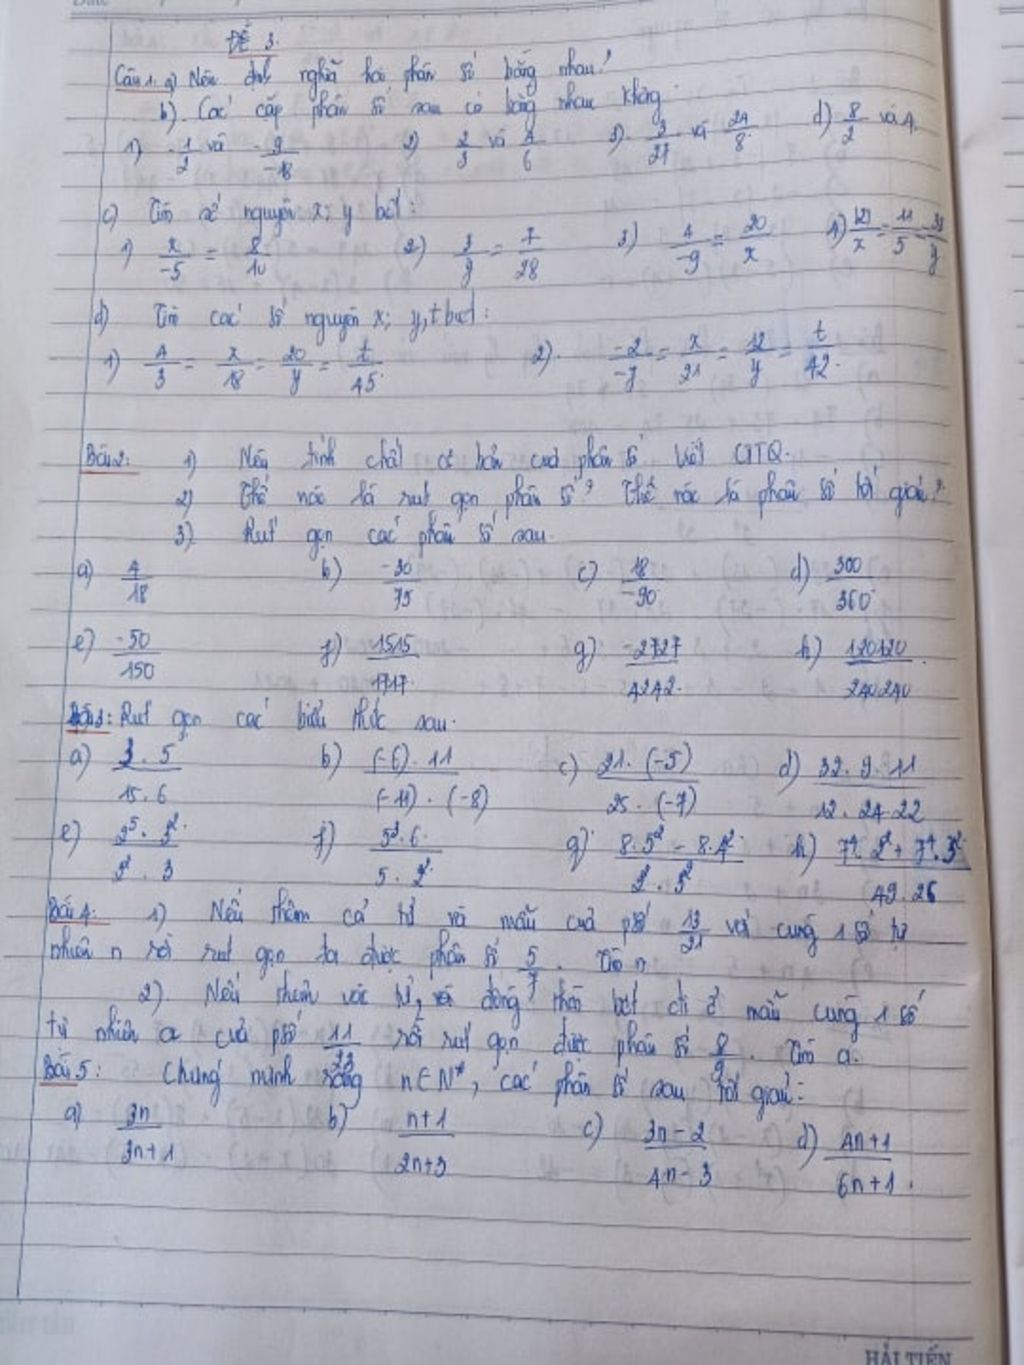 ĐỀ 3.
Câu 1. a) Nêu định nghĩa hai phân số bằng nhau?
b). Các cặp phân số sau có bằng nhau không.
1) -1/2 và -9/-18 2) 2/3 và 4/6 3) 3/27 và 24/8 d) 8/2 và 4.
c) Tìm số nguyên x; y biết:
1) x/-5 = 8/10 2) 3/y = 7/28 3) 4/-9 = 20/x 4) /x = 11/5 = /y
d) Tìm các số nguyên x; y, t biết:
1) 4/3 = x/18 = 20/y = t/45. 2). -2/-7 = x/21 = 12/y = t/42.
Bài 2: 1) Nêu tính chất cơ bản của phân số Viết CTTQ.
2) Thế nào là rút gọn phân số? Thế nào là phân số tối giản?
3) Rút gọn các phân số sau.
a) 4/18 b) -30/75 c) 18/-90 d) 300/360
e) -50/150 f) 1515/1717. g) -2727/4242. h) 120120/240240
Bài 3: Rút gọn các biểu thức sau.
a) 3.5/15.6 b) (-6).11/(-11).(-8) c) 21.(-5)/25.(-7) d) 32.9.11/12.24.22
e) 2⁵.3²/2.3 f) 5³.6/5.2² g) 8.5² - 8.4²/2.3² h) 7⁴.2² + 7⁴.3²/49.26
Bài 4: 1) Nếu thêm cả tử và mẫu của psố 13/21 với cùng 1 số tự
nhiên n rồi rút gọn ta được phân số 5/7. Tìm n
2). Nếu thêm vào tử, và đồng thời bớt đi ở mẫu cùng 1 số
tự nhiên a của psố rồi rút gọn được phân số 8/9. Tìm a.
Bài 5: Chứng minh rằng n∈N*, các phân số sau tối giản:
a) 3n/3n+1 b) n+1/2n+3 c) 3n-2/4n-3 d) 4n+1/6n+1.
HẢI TIẾN